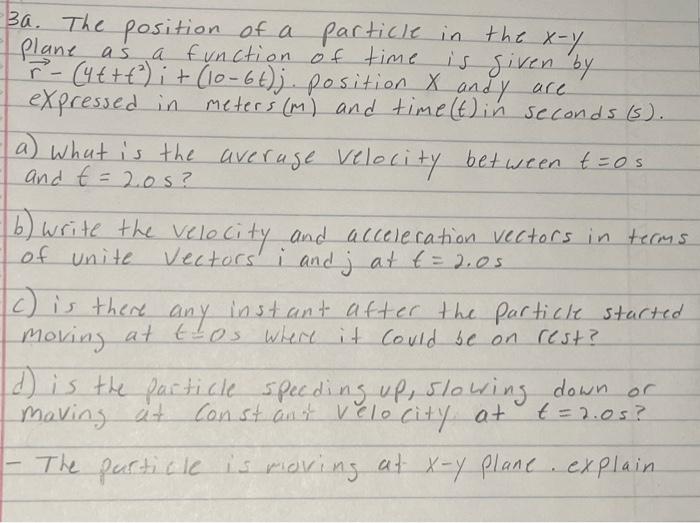 3a. The position of a particle in the x-y
Plane as a function of time is given by
r⃗ - (4t+t²) i + (10-6t)j. position X and y are
expressed in meters (m) and time(t) in seconds (s).
a) what is the average velocity between t=0s
and t = 2.0s?
b) write the velocity and acceleration vectors in terms
of unite vectors i and j at t = 2.0s
c) is there any instant after the particle started
moving at t=0s where it could be on rest?
d) is the particle speeding up, slowing down or
moving at constant velocity at t = 2.0s?
- The particle is moving at x-y plane. explain